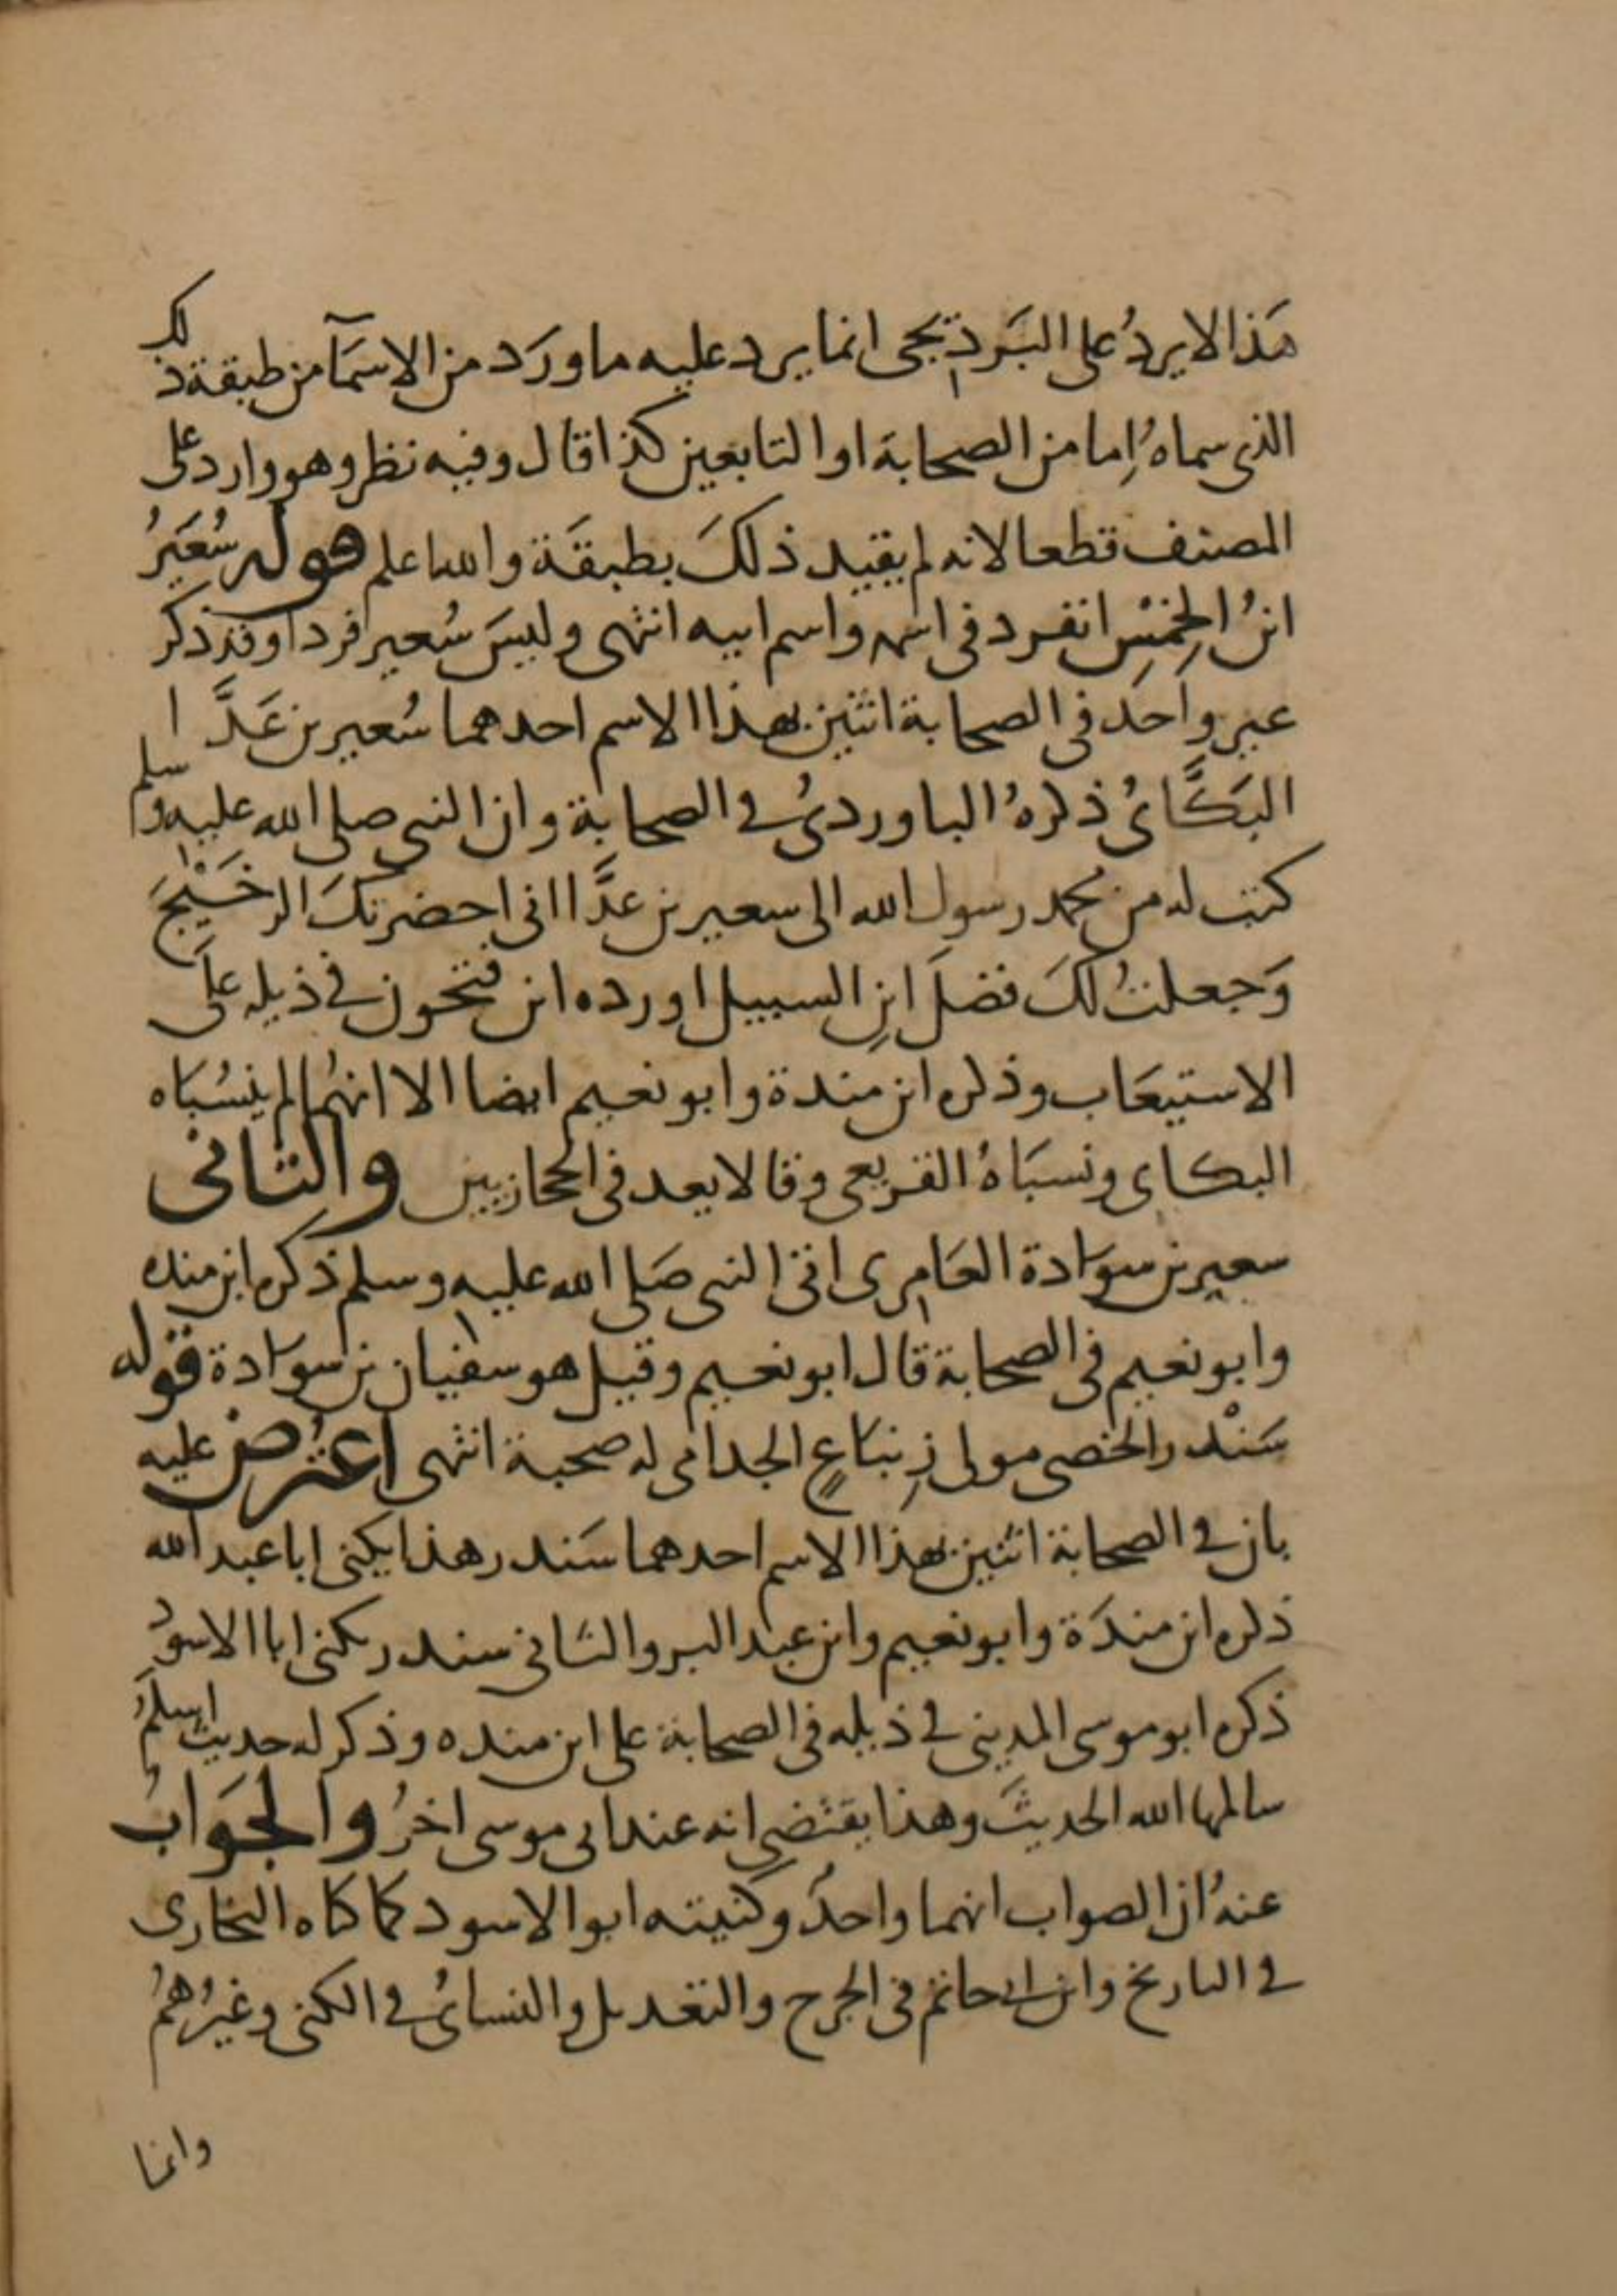 هَذا لا يردُ على البَرديجى انما يرد عليه ما ورَد من الاسمَآ من طبقة ذلك
الذى سماهُ اِما من الصحابة او التابعين كذا قال وفيه نظر وهو وارد على
المصنف قطعا لانه لم يقيد ذلكَ بطبقَة والله اعلم قوله سُعَيرُ
ابنُ الخِمْسِ انفرد فى اسمه واسم ابيه انتهى وليسَ سُعير فردا وقد ذكر
غير واحد فى الصحابة اثنين بهذا الاسم احدهما سُعير بن عَدَّا
البَكَّائىُ ذكرهُ الباوردىُ فى الصحابة وان النبى صلى الله عليه وسلم
كتب له من محمد رسول الله الى سعير بن عدَّا انى احضرتكَ الرخَيْجَ
وَجعلتُ لكَ فضلَ ابنِ السبيل اورده ابن فتحون فى ذيله علَى
الاستيعَاب وذكره ابن مندة وابو نعيم ايضا الا انهُما لم ينسُبَاه
البكاى ونسبَاهُ القريعى وقالا يعد فى الحجازيين والثانى
سعير بن سوَادة العَامرى اتى النبى صَلى الله عليه وسلم ذكره ابن منده
وابو نعيم فى الصحابة قال ابو نعيم وقيل هو سفيان بن سوَادة قوله
سَنْدر الخصى مولى زِنبَاعٍ الجدامى له صحبة انتهى اعتُرض عليه
بان فى الصحابة اثنين بهذا الاسم احدهما سَندر هذا يكنى ابا عبد الله
ذكره ابن مندَة وابو نعيم وابن عبد البر والثانى سندر يكنى ابا الاسود
ذكره ابو موسى المدينى فى ذيله فى الصحابة على ابن منده وذكر له حديث اسلمُ
سالمها الله الحديثَ وهذا يقتضى انه عند ابى موسى اخرُ والجَوَابُ
عنهُ ان الصواب انهما واحدُ وكنيته ابو الاسود كما كناه البخارى
فى التاريخ وابن ابى حاتم فى الجرح والتعديل والنسائىُ فى الكنى وغيرُهمُ
وانما